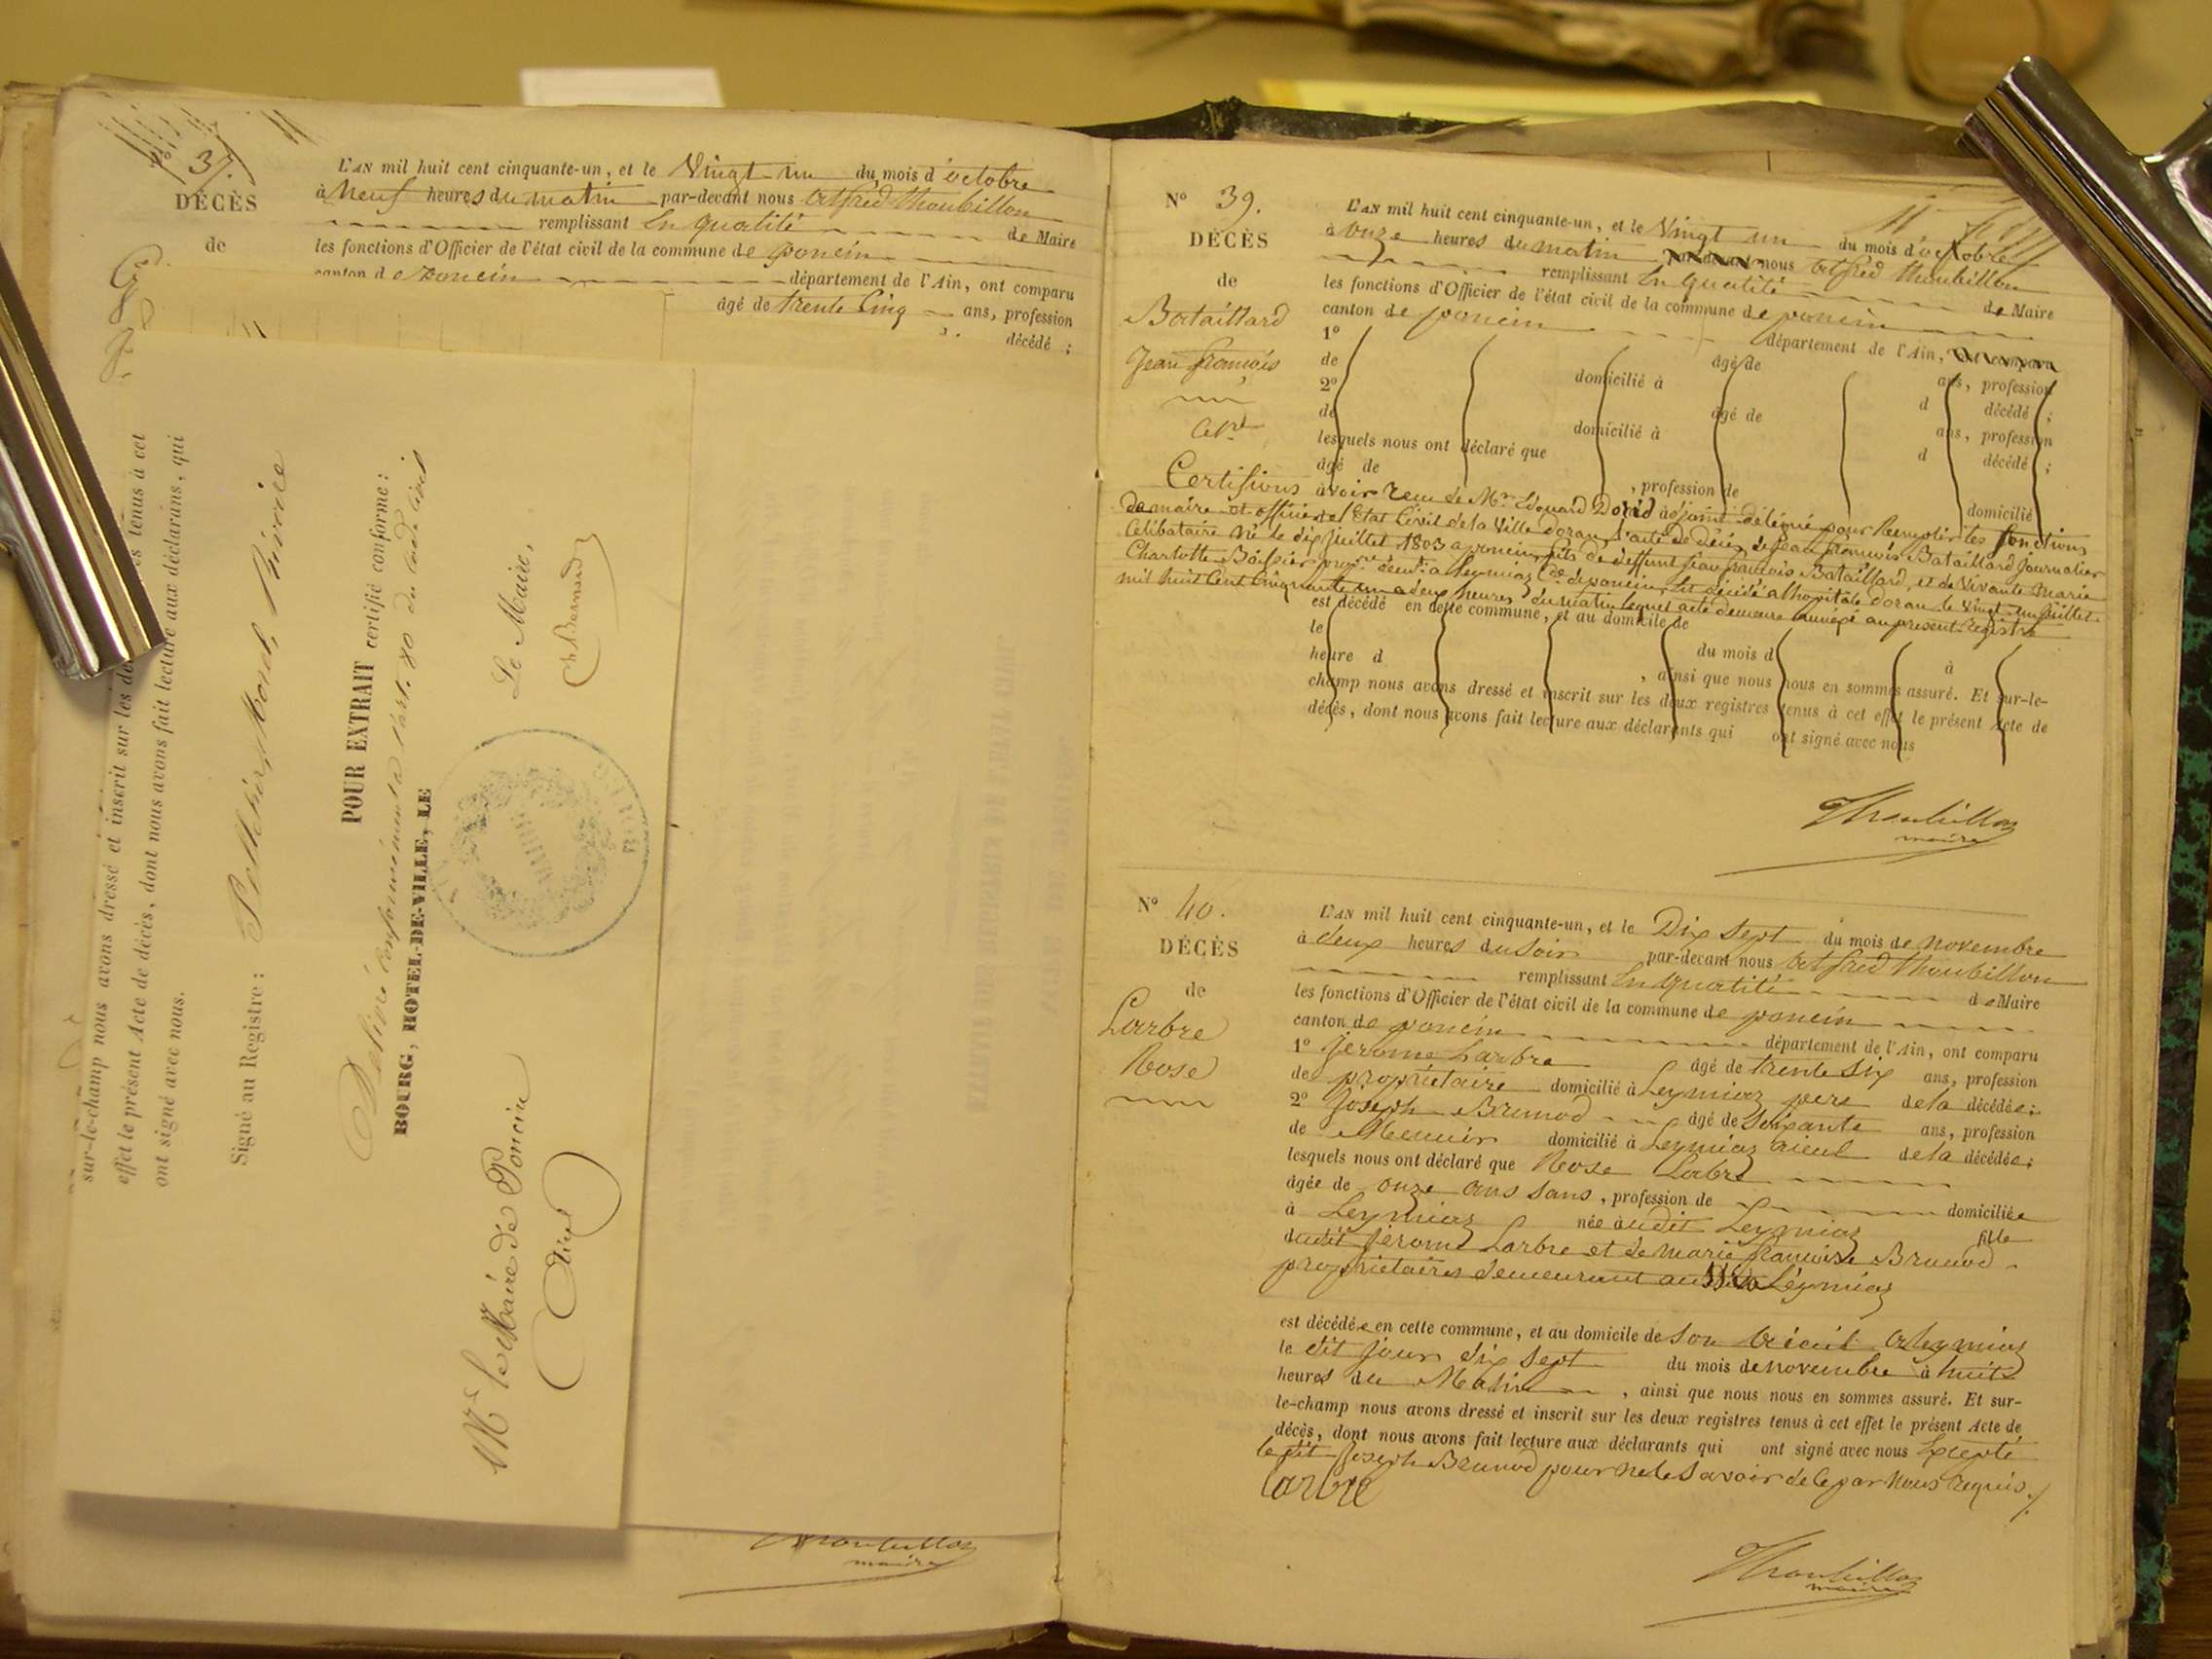 N° 37.
DÉCÈS
de
L'AN mil huit cent cinquante-un, et le Vingt-un du mois d'octobre
à Neuf heures du matin par-devant nous Alfred Thoubillon
remplissant En qualité de Maire
les fonctions d'Officier de l'état civil de la commune de poncin
canton de poncin département de l'Ain, ont comparu
âgé de trente Cinq ans, profession
décédé ;
sur-le-champ nous avons dressé et inscrit sur les tenus à cet
effet le présent Acte de décès, dont nous avons fait lecture aux déclarans, qui
ont signé avec nous.
Signé au Registre :
POUR EXTRAIT certifié conforme :
Délivré conformément à l'art. 80 du Code Civil
BOURG, HOTEL-DE-VILLE, LE
Le Maire,
Mr le Maire de Poncin
Ain
Thoubillon
maire
N° 39.
DÉCÈS
de
Bataillard
Jean françois
L'AN mil huit cent cinquante-un, et le Vingt un du mois d'octobre
à onze heures du matin par-devant nous Alfred Thoubillon
remplissant En qualité de Maire
les fonctions d'Officier de l'état civil de la commune de poncin
canton de poncin département de l'Ain, ont comparu
1° âgé de ans, profession
de domicilié à d décédé ;
2° âgé de ans, profession
de domicilié à d décédé ;
lesquels nous ont déclaré que
âgé de , profession de domicilié
Certifions avoir reçu de Mr Edouard David adjoint délégué pour Remplir les fonctions
de maire et officier de l'Etat Civil de la Ville doran, l'acte de décès de Jean françois Bataillard Journalier
Célibataire né le dix juillet 1803 a poncin, fils de deffunt Jean françois Bataillard, et de Vivante Marie
Charlotte demt a Leymiaz Cne de poncin, Est décédé a lhopital doran le Vingt-un Juillet
mil huit Cent Cinquante un a deux heures du matin lequel acte demeure annexé au present Registre
est décédé en cette commune, et au domicile de
le du mois d à
heure d , ainsi que nous nous en sommes assuré. Et sur-le-
champ nous avons dressé et inscrit sur les deux registres tenus à cet effet le présent Acte de
décès, dont nous avons fait lecture aux déclarants qui ont signé avec nous
Thoubillon
maire
N° 40.
DÉCÈS
de
Larbre
Rose
L'AN mil huit cent cinquante-un, et le Dix Sept du mois de novembre
à deux heures du Soir par-devant nous Alfred Thoubillon
remplissant En qualité de Maire
les fonctions d'Officier de l'état civil de la commune de poncin
canton de poncin département de l'Ain, ont comparu
1° Jerome Larbre âgé de trente Six ans, profession
de propriétaire domicilié à Leymiaz pere de la décédée ;
2° Joseph Brunod âgé de Soixante ans, profession
de Menuir domicilié à Leymiaz aieul de la décédée ;
lesquels nous ont déclaré que Rose Labre
âgée de onze ans sans , profession de domiciliée
à Leymiaz née audit Leymiaz fille
dudit Jerome Larbre et de marie françoise Brunod
propriétaires demeurant aussi a Leymiaz
est décédée en cette commune, et au domicile de Son aieul a Leymiaz
le dit jour dix sept du mois de novembre à huit
heures du Matin , ainsi que nous nous en sommes assuré. Et sur-
le-champ nous avons dressé et inscrit sur les deux registres tenus à cet effet le présent Acte de
décès, dont nous avons fait lecture aux déclarants qui ont signé avec nous Excepté
le dit Joseph Brunod pour ne le Savoir de ce par Nous Requis./
larbre
Thoubillon
maire